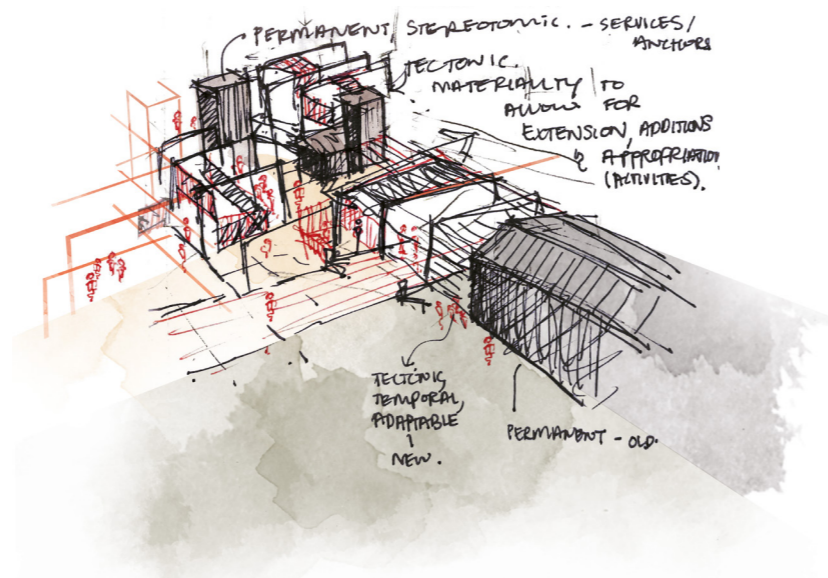 PERMANENT/ STEREOTOMIC. - SERVICES/
ANCHORS
TECTONIC.
MATERIALITY TO
ALLOW FOR
EXTENSION, ADDITIONS
& APPROPRIATION
(ACTIVITIES).
TECTONIC,
TEMPORAL,
ADAPTABLE
NEW.
PERMANENT - OLD.